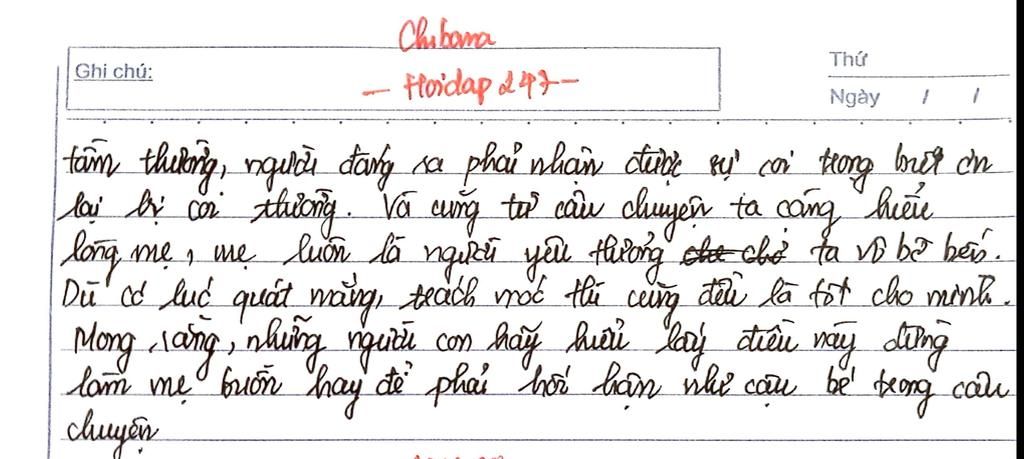 Chibana
Ghi chú:
— Hoidap247 —
Thứ
Ngày / /
tầm thường, người đáng ra phải nhận được sự coi trọng biết ơn
lại bị coi thường. Và cũng từ câu chuyện ta càng hiểu
lòng mẹ, mẹ luôn là người yêu thương ta vô bờ bến.
Dù có lúc quát mắng, trách móc thì cũng đều là tốt cho mình.
Mong rằng, những người con hãy hiểu lấy điều này đừng
làm mẹ buồn hay để phải hối hận như cậu bé trong câu
chuyện